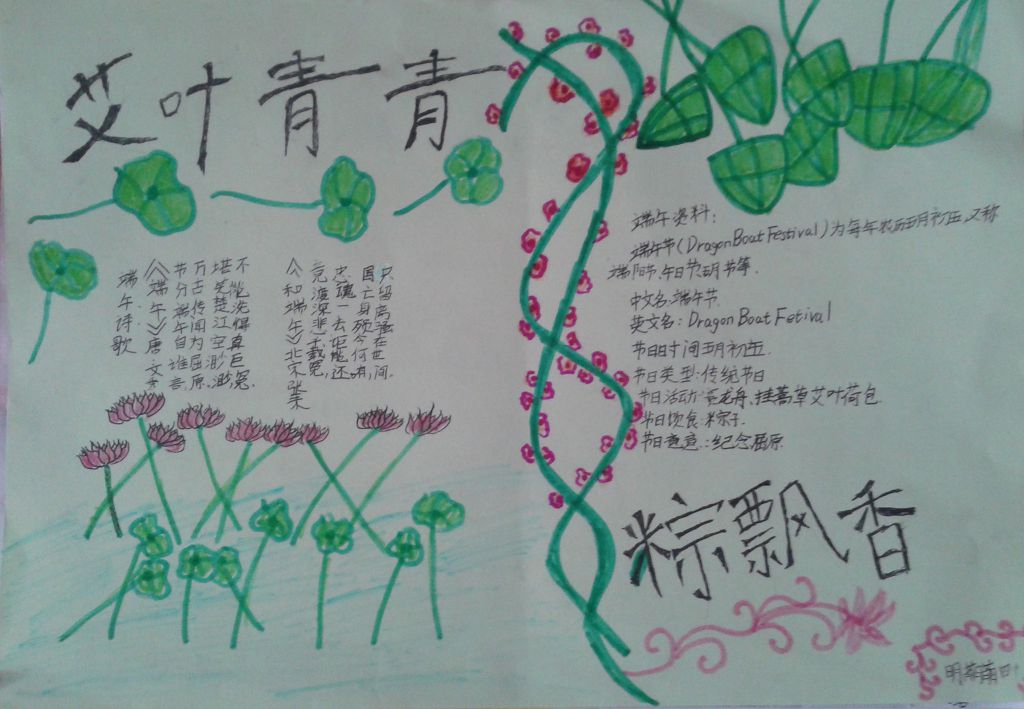 艾叶青青
端午诗歌
《端午》唐 文秀
节分端午自谁言,
万古传闻为屈原.
堪笑楚江空渺渺,
不能洗得真巨冤.
《和端午》北宋 张耒
竞渡深悲千载冤,
忠魂一去讵能还,
国亡身殒今何在,
只留离骚在世间.
端午资料:
端午节(Dragon Boat Festival)为每年农历五月初五,又称
端阳节,午日节,五月节等.
中文名:端午节.
英文名: Dragon Boat Fetival
节日时间:五月初五.
节日类型:传统节日
节日活动:赛龙舟、挂菖草艾叶荷包.
节日饮食:粽子.
节日意意:纪念屈原.
粽飘香